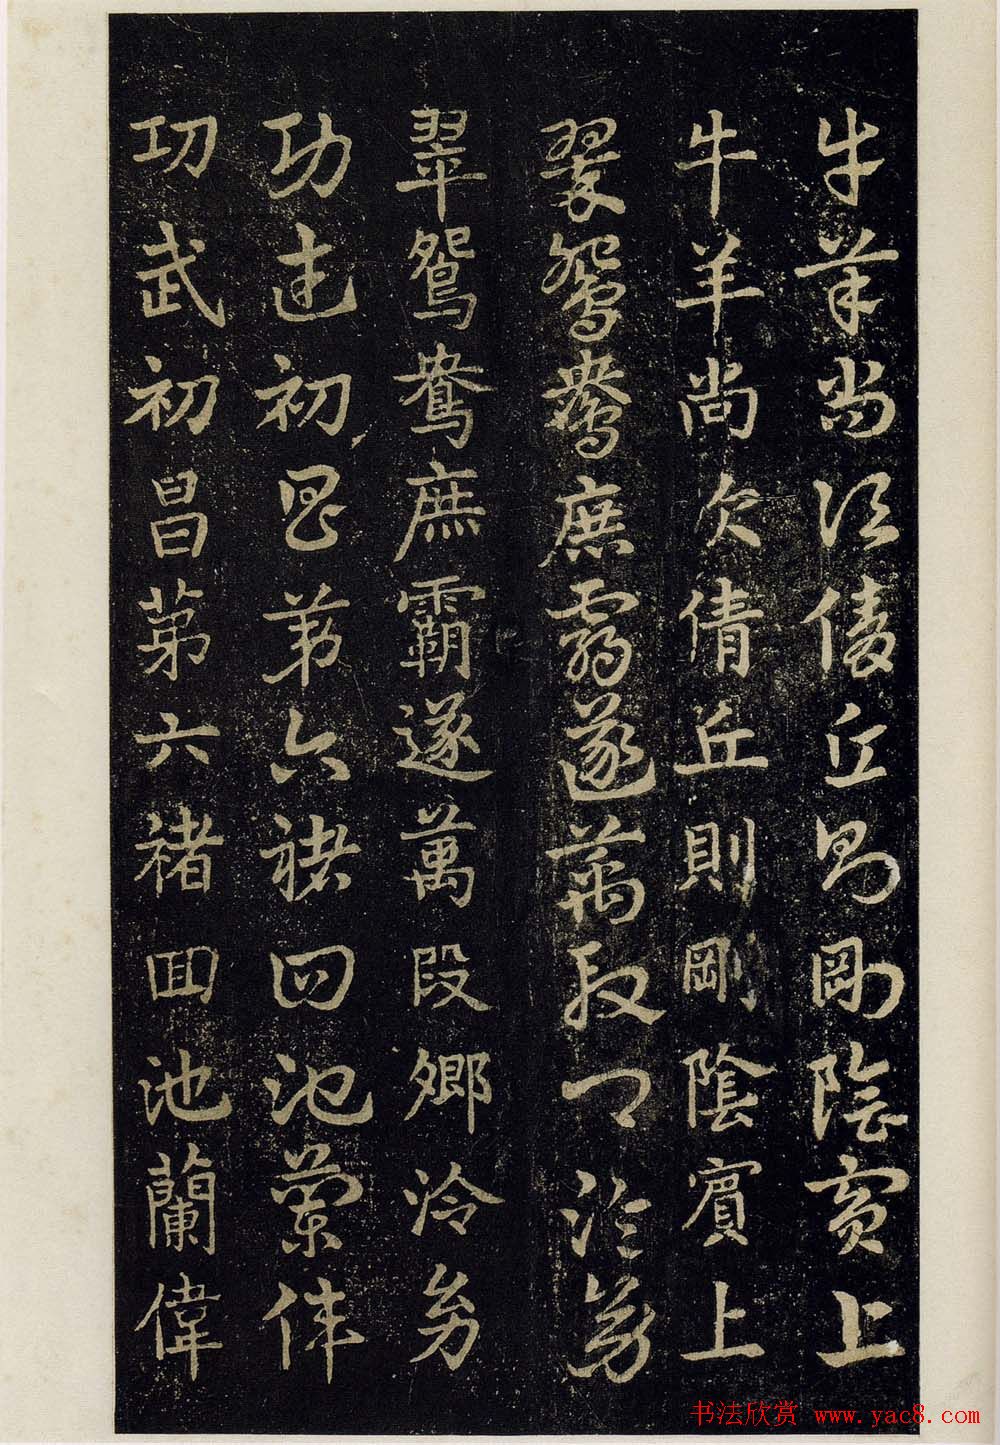 牛羊尚次倩丘則剛陰賓上
牛羊尚次倩丘則剛陰賓上
翠鴛鴦庶霸遂萬段卿泠幼
翠鴛鴦庶霸遂萬段卿泠幼
功武初昌第六褚回池蘭偉
功武初昌第六褚回池蘭偉
书法欣赏 www.yac8.com